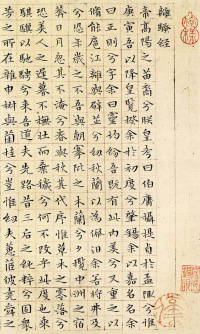 離騷經
帝高陽之苗裔兮朕皇考曰伯庸攝提貞于孟陬兮惟
庚寅吾以降皇覽揆余於初度兮肇錫余以嘉名名余
曰正則兮字余曰靈均紛吾既有此內美兮又重之以
脩能扈江離與辟芷兮紉秋蘭以為佩汩余若將弗及
兮恐年歲之不吾與朝搴阰之木蘭兮夕攬中洲之宿
莽日月忽其不淹兮春與秋其代序惟草木之零落兮
恐美人之遲暮不撫壯而棄穢兮何不改乎此度也乘
騏驥以馳騁兮來吾道夫先路昔三后之純粹兮固眾
芳之所在雜申椒與菌桂兮豈惟紉夫蕙茝彼堯舜之